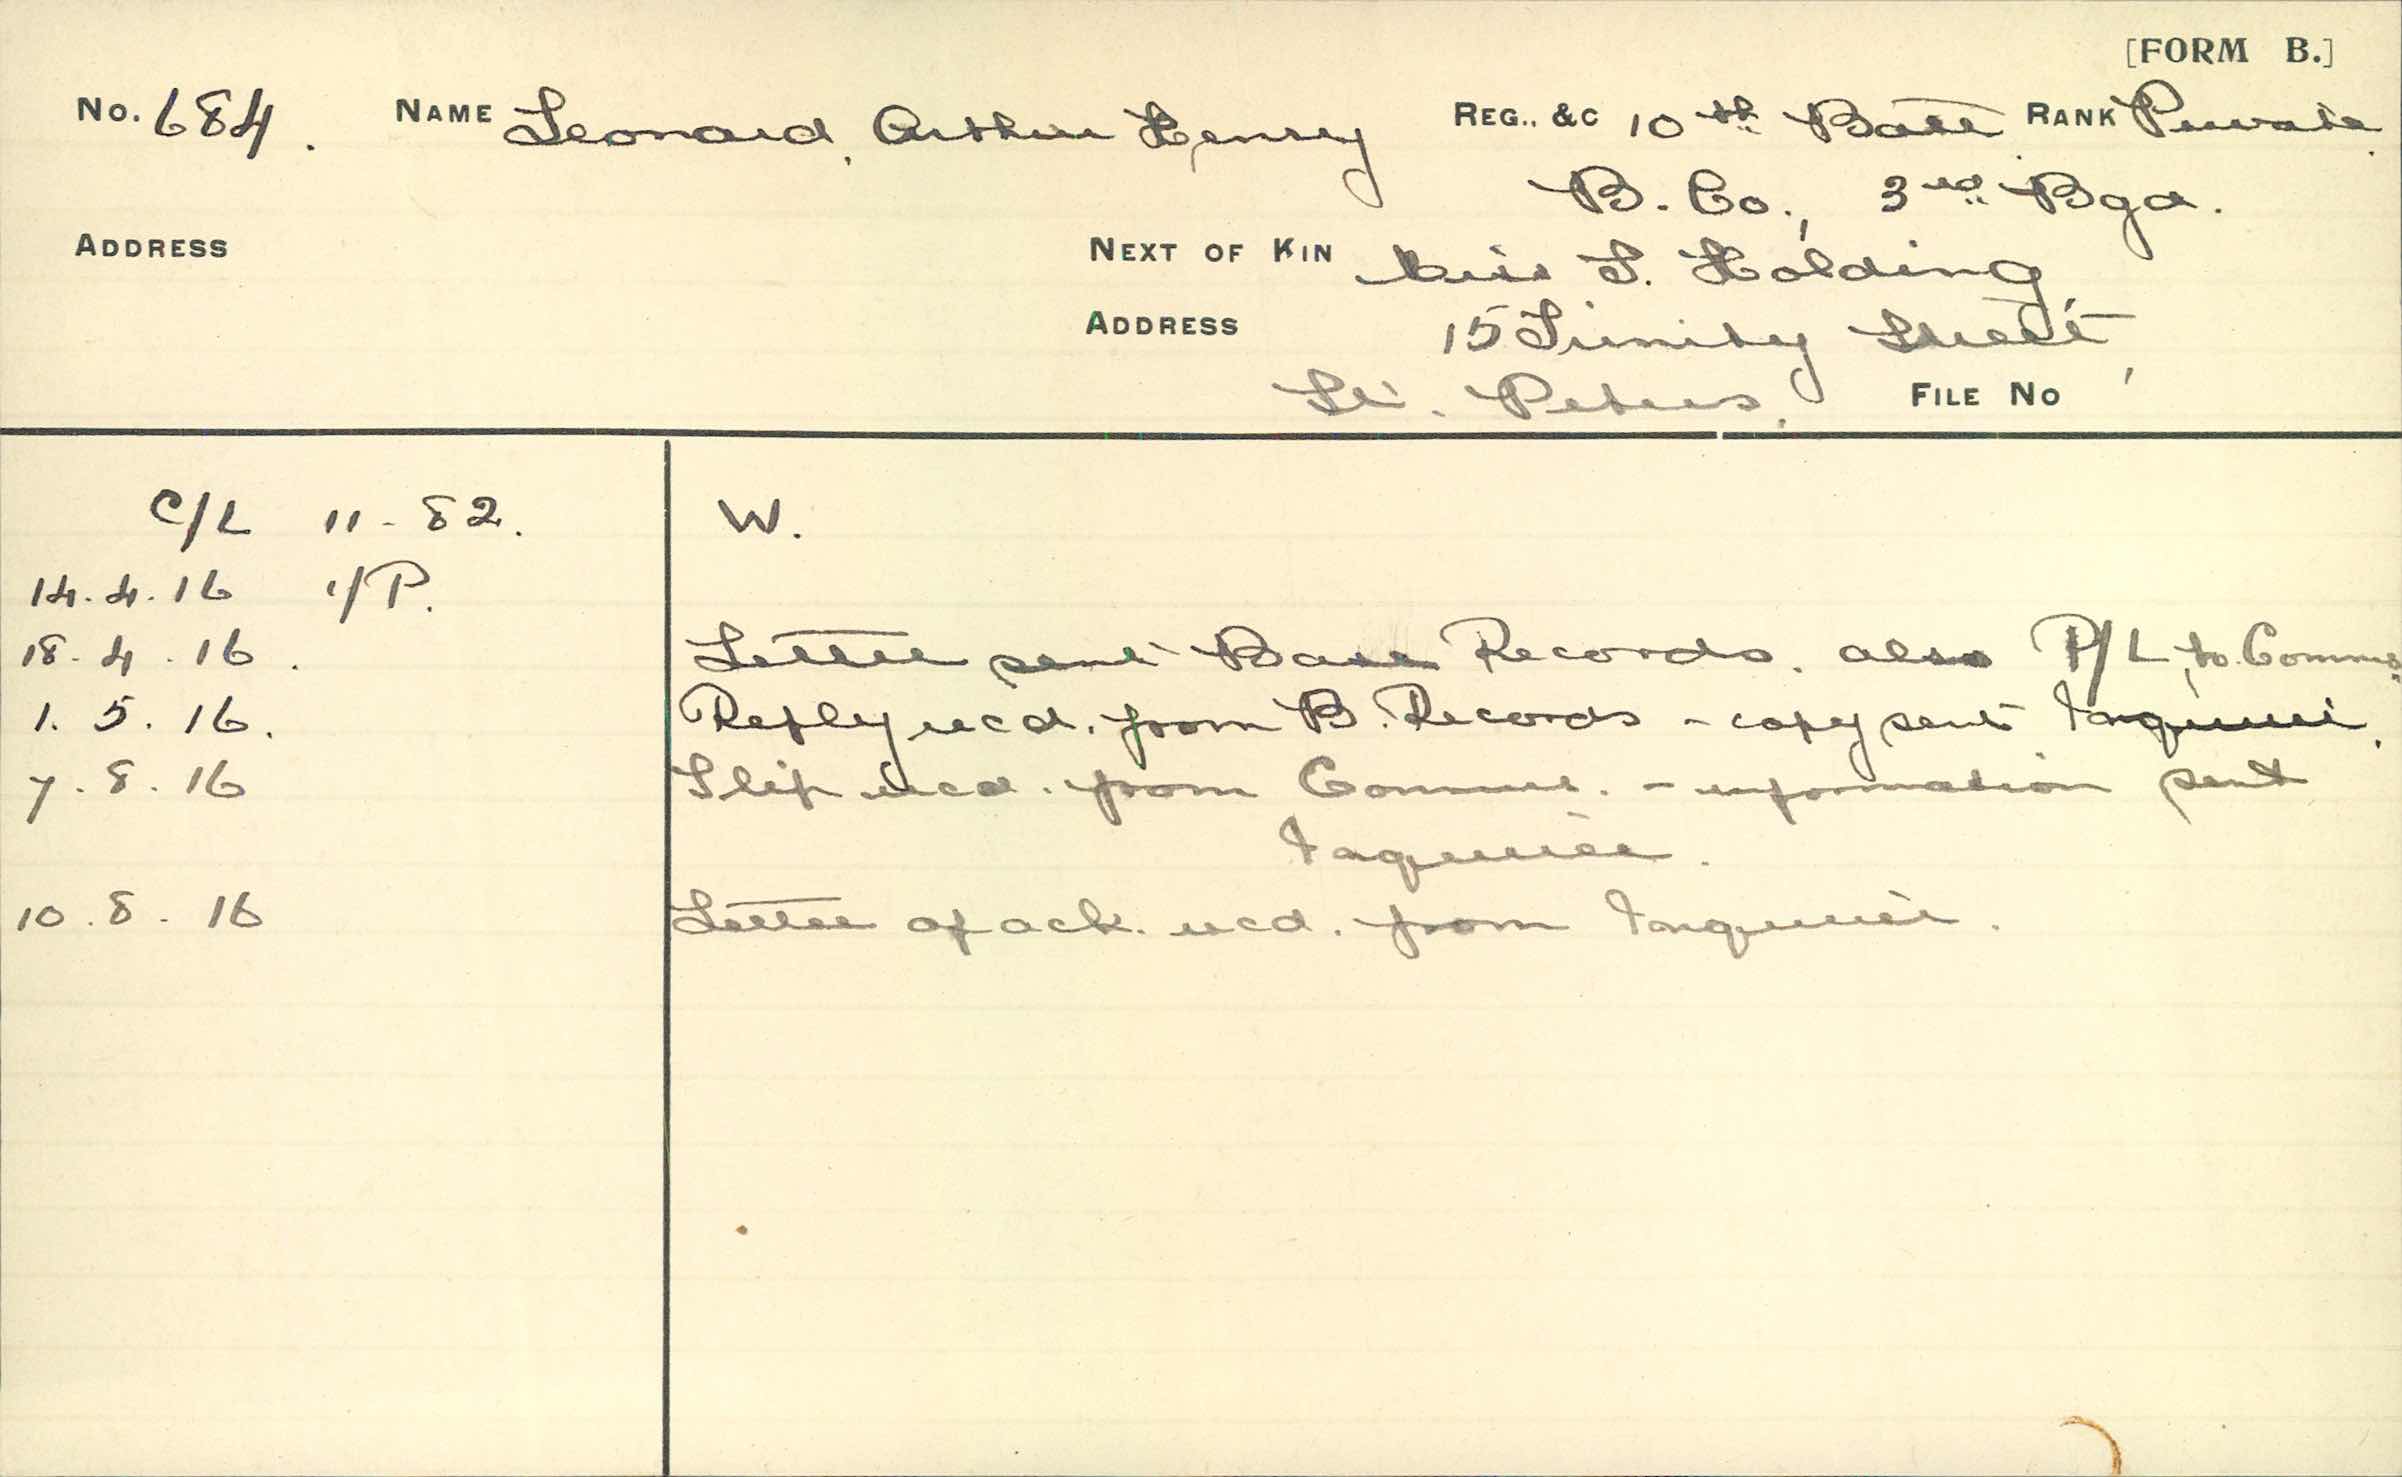 [FORM B.]
No. 684. NAME Leonard, Arthur Henry REG., &C 10th Batt. RANK Private.
B. Co., 3rd Bga.
ADDRESS NEXT OF KIN Miss S. Holding,
ADDRESS 15 Trinity Street,
St. Peters. FILE No
C/L 11-82. W.
14.4.16 1/P.
18.4.16. Letter sent Base Records. also P/L to Commrs.
1.5.16. Reply recd. from B. Records - copy sent Inquirer.
7.8.16 Slip recd. from Commrs. - information sent
Inquirer.
10.8.16 Letter of ack. recd. from Inquirer.